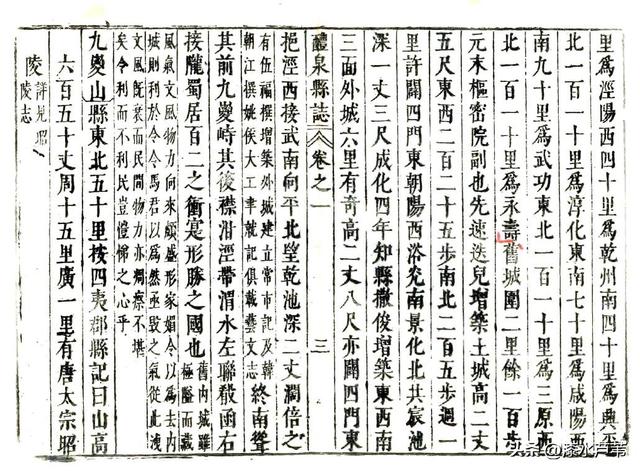 里爲涇陽西四十里爲乾州南四十里爲興平
南九十里爲武功東北一百一十里爲三原西
北一百一十里爲淳化東南七十里爲咸陽西
北一百一十里爲永壽舊城圍二里餘一百步
元末樞密院副也先速迭兒增築土城高二丈
五尺東西二百二十五步南北二百五步週一
里許闢四門東朝陽西浴兊南景化北共宸池
深一丈三尺成化四年知縣撒俊增築東西南
三面外城六里有奇高二丈八尺亦闢四門東
醴泉縣誌 卷之一 三
挹涇西接武南向平北望乾池深二丈濶倍之
有伍福撰增築外城建立常市記及韓
朝江撰姚侯大工聿就記俱載藝文志
終南聳
其前九嵕峙其後襟沿涇帶渭水左聯轂函右
接隴蜀居百二之衝寔形勝之國也
舊內城雖
極隘而藏
風氣文風物力向來頗盛形家媚令以爲去內
城則利於令令馬君以爲然亟毀之氣從此洩
文風旣衰而民間物力亦凋瘵不堪
矣令利而不利民豈愷悌之心乎
九嵕山縣東北五十里按四夷郡縣記曰山高
六百五十丈周十五里廣一里有唐太宗昭
陵
詳見昭
陵志
头条@漆水芦苇